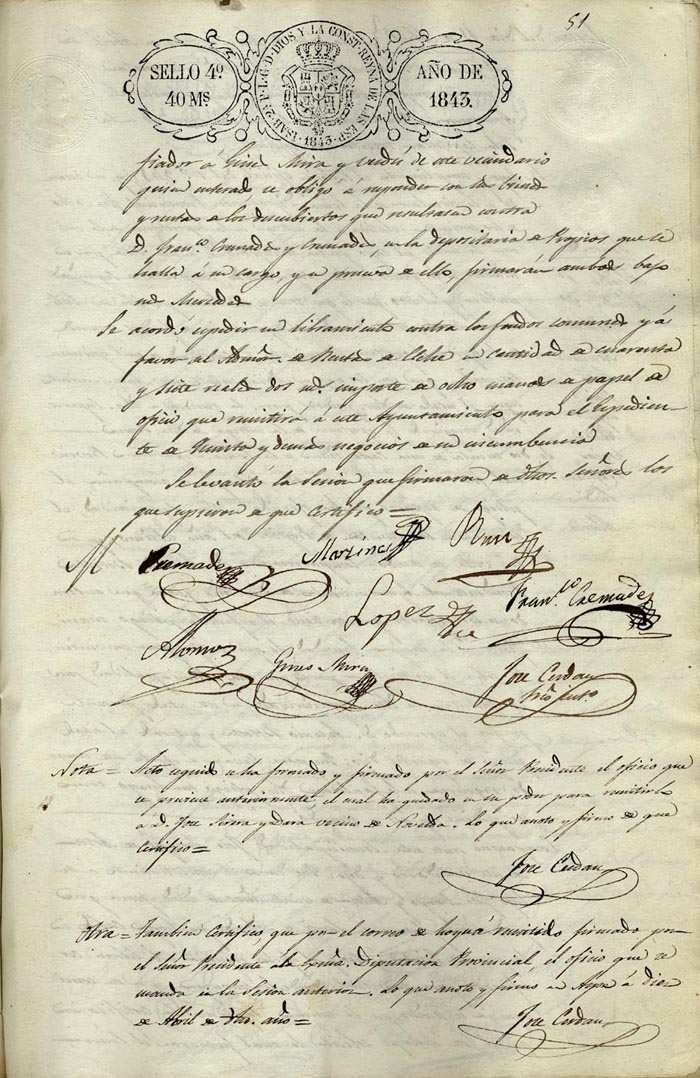 51
SELLO 4º
40 Ms
ISAB. 2ª P. L. G. D. DIOS Y LA CONST. REYNA DE LAS ESP.
1843.
AÑO DE
1843.
fiador á Gines Mira y de este vecindario
quien enterado se obligó á responder con sus bienes
y rentas a los descubiertos que resultasen contra
D. Franco. Cremades y Cremades, en la depositaria de Propios que se
halla á su cargo, y en prueva de ello, firmarán ambos bajo
Se acordó expedir un libramiento contra los fondos comunes y á
favor del Admor. de Rentas de Elche en cantidad de cuarenta
y siete reales dos ms. importe de ocho manos de papel de
oficio que remitirá á este Ayuntamiento para el Espedien-
te de Quinta y demas negocios de su incumbencia
Se levantó la Sesion que firmaron de dhos. Señores los
que supieron de que Certifico=
Cremades
Martinez
Ruiz
Lopez
Franco. Cremades
Alonso
Gines Mira
Jose Cerdan
Nota= Acto seguido se ha formado y firmado por el Señor Presidente el oficio que
se previene anteriormente, el cual ha quedado en su poder para remitirlo
a D. Jose Sirera y Dara vecino de Novelda. Lo que anoto y firmo de que
Certifico=
Jose Cerdan
Otra= Tambien Certifico, que por el correo de hoy se há remitido firmado por
el Señor Presidente a la Exma. Diputacion Provincial, el oficio que se
manda en la Sesion anterior. Lo que anoto y firmo en Aspe á diez
de Abril de dho. año=
Jose Cerdan